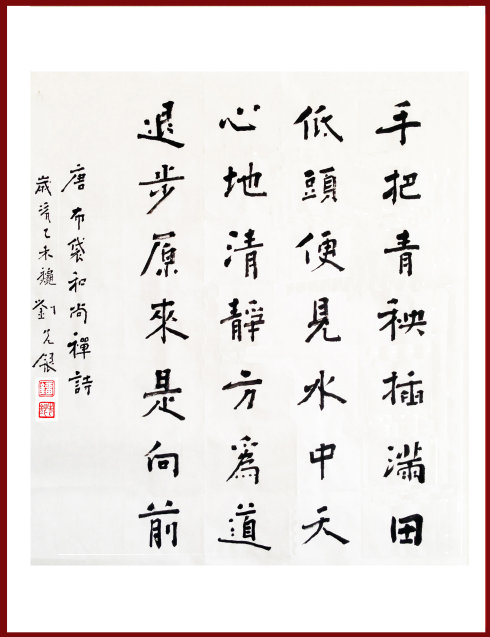 手把青秧插滿田
低頭便見水中天
心地清靜方爲道
退步原來是向前
唐布袋和尚禪詩
歲次乙未穐劉